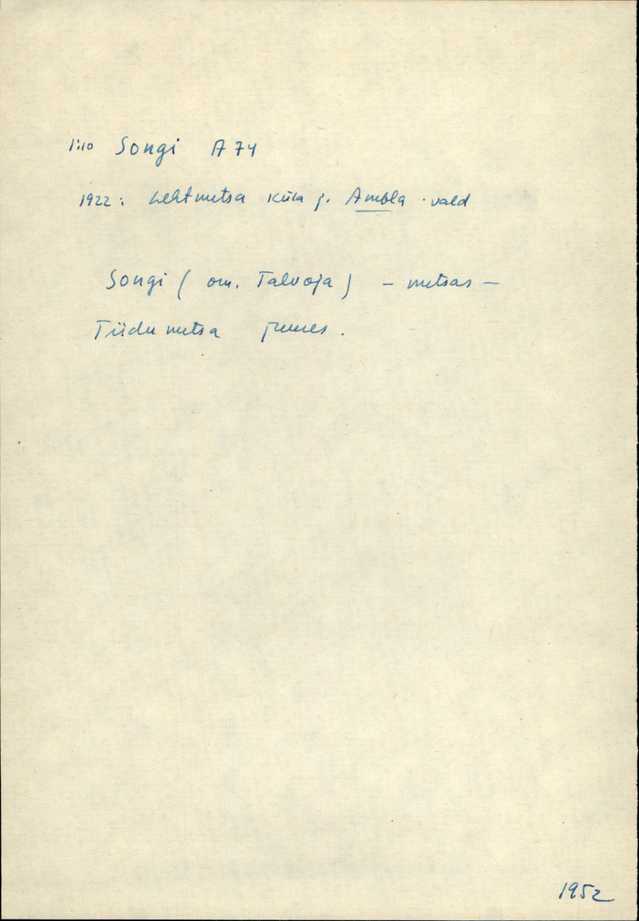 1:10 Songi A 74
1922: Lehtmetsa küla j. Ambla vald
Songi (om. Talvoja) – metsas –
Tiidu metsa juures.
1952